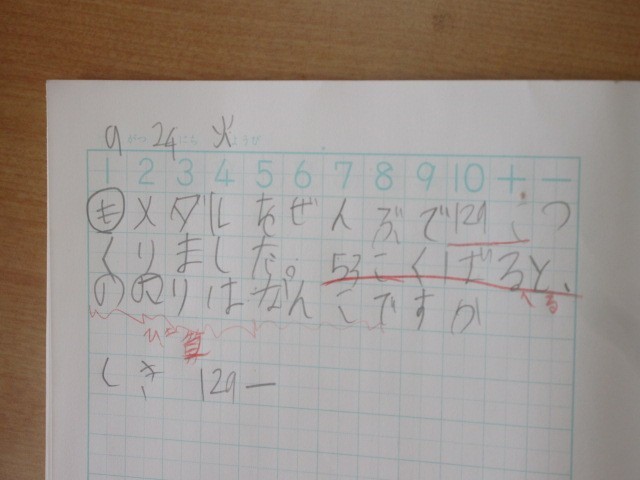 9 24 火
1 2 3 4 5 6 7 8 9 10 + −
も メダルをぜんぶで129こつ
くりました。53こくばると、
のこりはなんこですか
へる
しき 129−